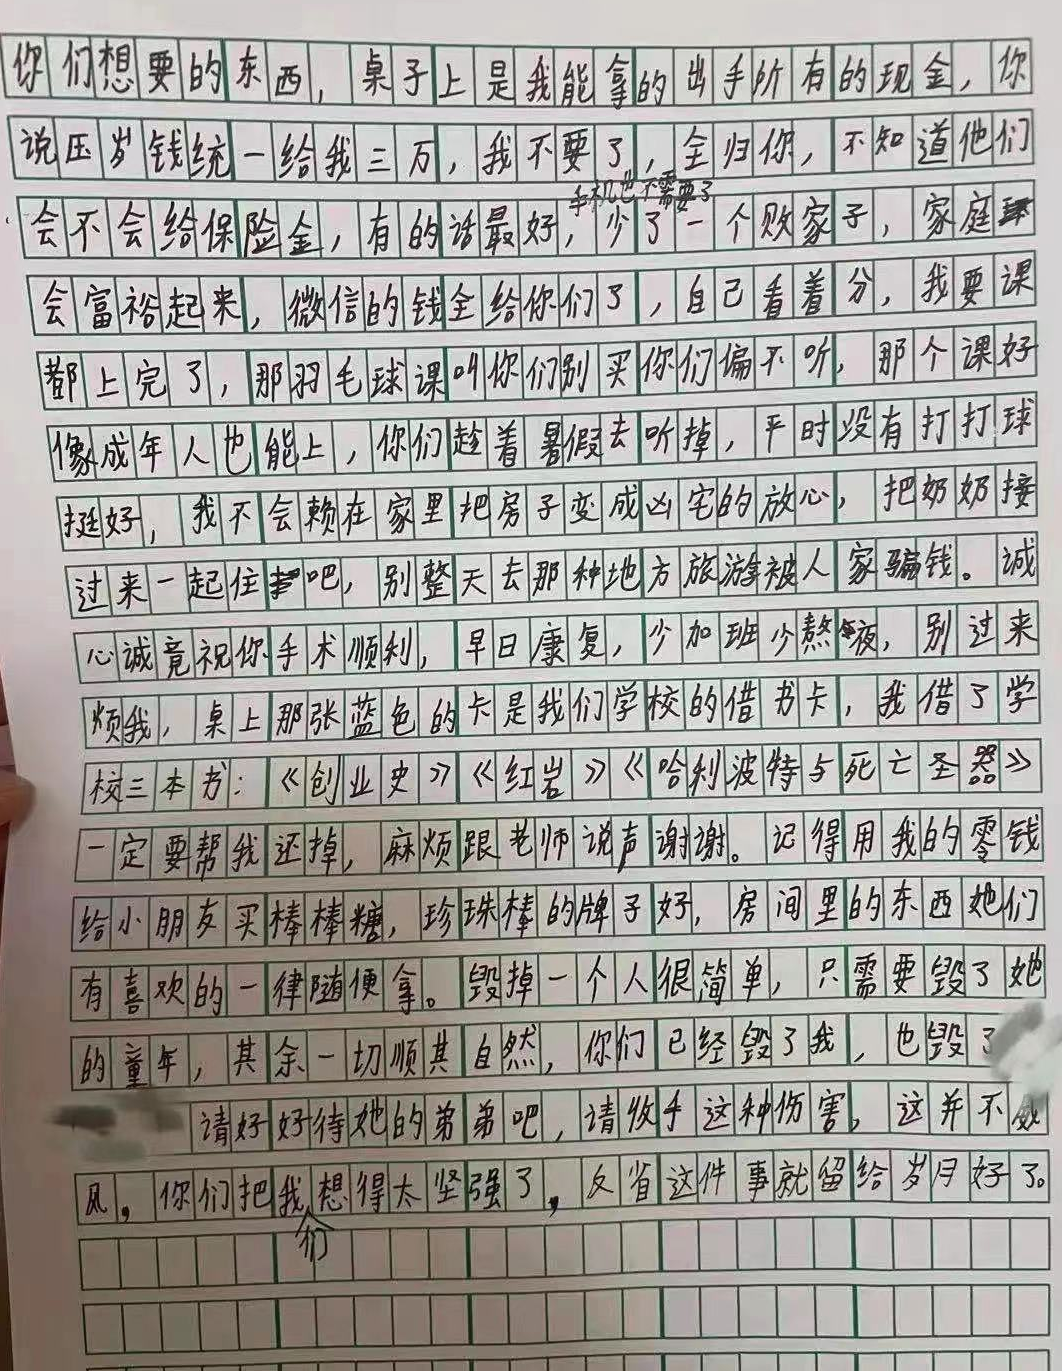 你们想要的东西，桌子上是我能拿的出手所有的现金，你
说压岁钱统一给我三万，我不要了，全归你，不知道他们
手机也不需要了
会不会给保险金，有的话最好，少了一个败家子，家庭
会富裕起来，微信的钱全给你们了，自己看着分，我要课
都上完了，那羽毛球课叫你们别买你们偏不听，那个课好
像成年人也能上，你们趁着暑假去听掉，平时没有打打球
挺好，我不会赖在家里把房子变成凶宅的放心，把奶奶接
过来一起住吧，别整天去那种地方旅游拿被人家骗钱。诚
心诚竟祝你手术顺利，早日康复，少加班少熬夜，别过来
烦我，桌上那张蓝色的卡是我们学校的借书卡，我借了学
校三本书：《创业史》《红岩》《哈利波特与死亡圣器》
一定要帮我还掉，麻烦跟老师说声谢谢。记得用我的零钱
给小朋友买棒棒糖，珍珠棒的牌子好，房间里的东西她们
有喜欢的一律随便拿。毁掉一个人很简单，只需要毁了她
的童年，其余一切顺其自然，你们已经毁了我，也毁了
请好好待她的弟弟吧，请收手这种伤害，这并不威
风，你们把我们想得太坚强了，反省这件事就留给岁月好了。